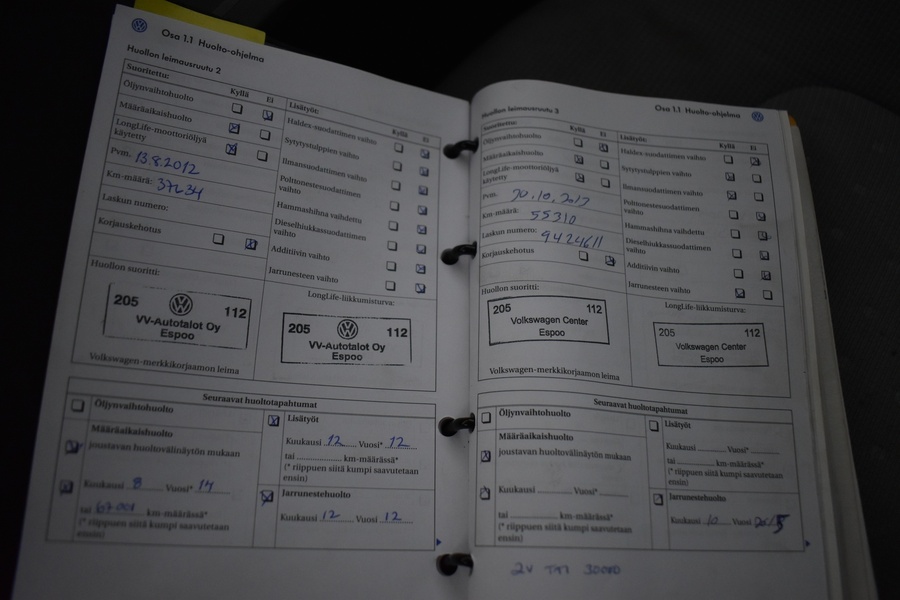 Osa 1.1 Huolto-ohjelma
Huollon leimausruutu 2
Suoritettu:
Kyllä Ei
Öljynvaihtohuolto
Määräaikaishuolto
LongLife-moottoriöljyä
käytetty
Pvm. 13.8.2012
Km-määrä: 37234
Laskun numero:
Korjauskehotus
Lisätyöt:
Kyllä Ei
Haldex-suodattimen vaihto
Sytytystulppien vaihto
Ilmansuodattimen vaihto
Polttonestesuodattimen
vaihto
Hammashihna vaihdettu
Dieselhiukkassuodattimen
vaihto
Additiivin vaihto
Jarrunesteen vaihto
Huollon suoritti:
205 112
VV-Autotalot Oy
Espoo
Volkswagen-merkkikorjaamon leima
LongLife-liikkumisturva:
205 112
VV-Autotalot Oy
Espoo
Seuraavat huoltotapahtumat
Öljynvaihtohuolto
Määräaikaishuolto
joustavan huoltovälinäytön mukaan
Kuukausi 8 Vuosi* 14
tai 67001 km-määrässä*
(* riippuen siitä kumpi saavutetaan
ensin)
Lisätyöt
Kuukausi 12 Vuosi* 12
tai km-määrässä*
(* riippuen siitä kumpi saavutetaan
ensin)
Jarrunestehuolto
Kuukausi 12 Vuosi 12
Osa 1.1 Huolto-ohjelma
Huollon leimausruutu 3
Suoritettu:
Kyllä Ei
Öljynvaihtohuolto
Määräaikaishuolto
LongLife-moottoriöljyä
käytetty
Pvm.
Km-määrä: 55310
Laskun numero: 9424611
Korjauskehotus
Lisätyöt:
Kyllä Ei
Haldex-suodattimen vaihto
Sytytystulppien vaihto
Ilmansuodattimen vaihto
Polttonestesuodattimen
vaihto
Hammashihna vaihdettu
Dieselhiukkassuodattimen
vaihto
Additiivin vaihto
Jarrunesteen vaihto
Huollon suoritti:
205 112
Volkswagen Center
Espoo
Volkswagen-merkkikorjaamon leima
LongLife-liikkumisturva:
205 112
Volkswagen Center
Espoo
Seuraavat huoltotapahtumat
Öljynvaihtohuolto
Määräaikaishuolto
joustavan huoltovälinäytön mukaan
Kuukausi Vuosi*
tai km-määrässä*
(* riippuen siitä kumpi saavutetaan
ensin)
Lisätyöt
Kuukausi Vuosi*
tai km-määrässä*
(* riippuen siitä kumpi saavutetaan
ensin)
Jarrunestehuolto
Kuukausi 10 Vuosi 2015
2V TAI 30000